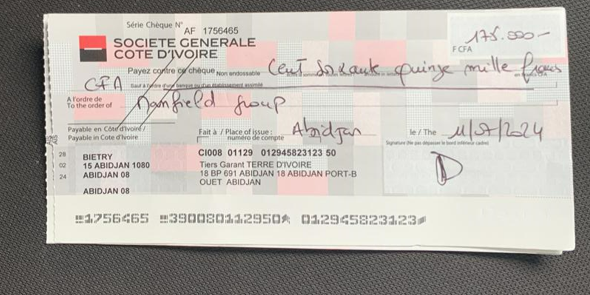 Série Chèque N° AF 1756465
175.000-
F CFA
SOCIETE GENERALE
COTE D'IVOIRE
Payez contre ce chèque Non endossable Cent Soixante quinze mille francs
CFA
A l'ordre de
To the order of Manfield Group
Payable en Côte d'Ivoire /
Payable in Cote d'Ivoire
Fait à / Place of issue : Abidjan
le / The 11/07/2024
numéro de compte
28 BIETRY CI008 01129 012945823123 50
02 15 ABIDJAN 1080 Tiers Garant TERRE D'IVOIRE
24 ABIDJAN 08 18 BP 691 ABIDJAN 18 ABIDJAN PORT-B
OUET ABIDJAN
ABIDJAN 08
1756465 390080112950 012945823123